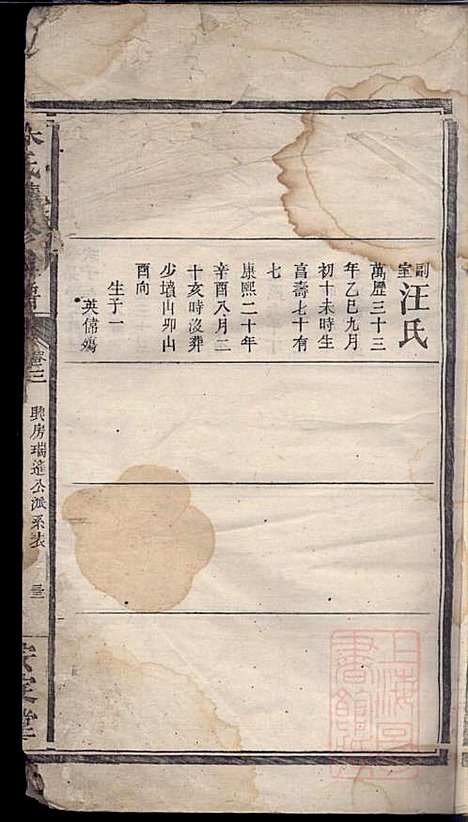 副室汪氏
萬歷三十三
年乙巳九月
初十未時生
富壽七十有
七
康熙二十年
辛酉八月二
十亥時沒葬
少墳山卯山
酉向
生子一
英儒殤
卷三
興房瑞進公派系表
安定堂